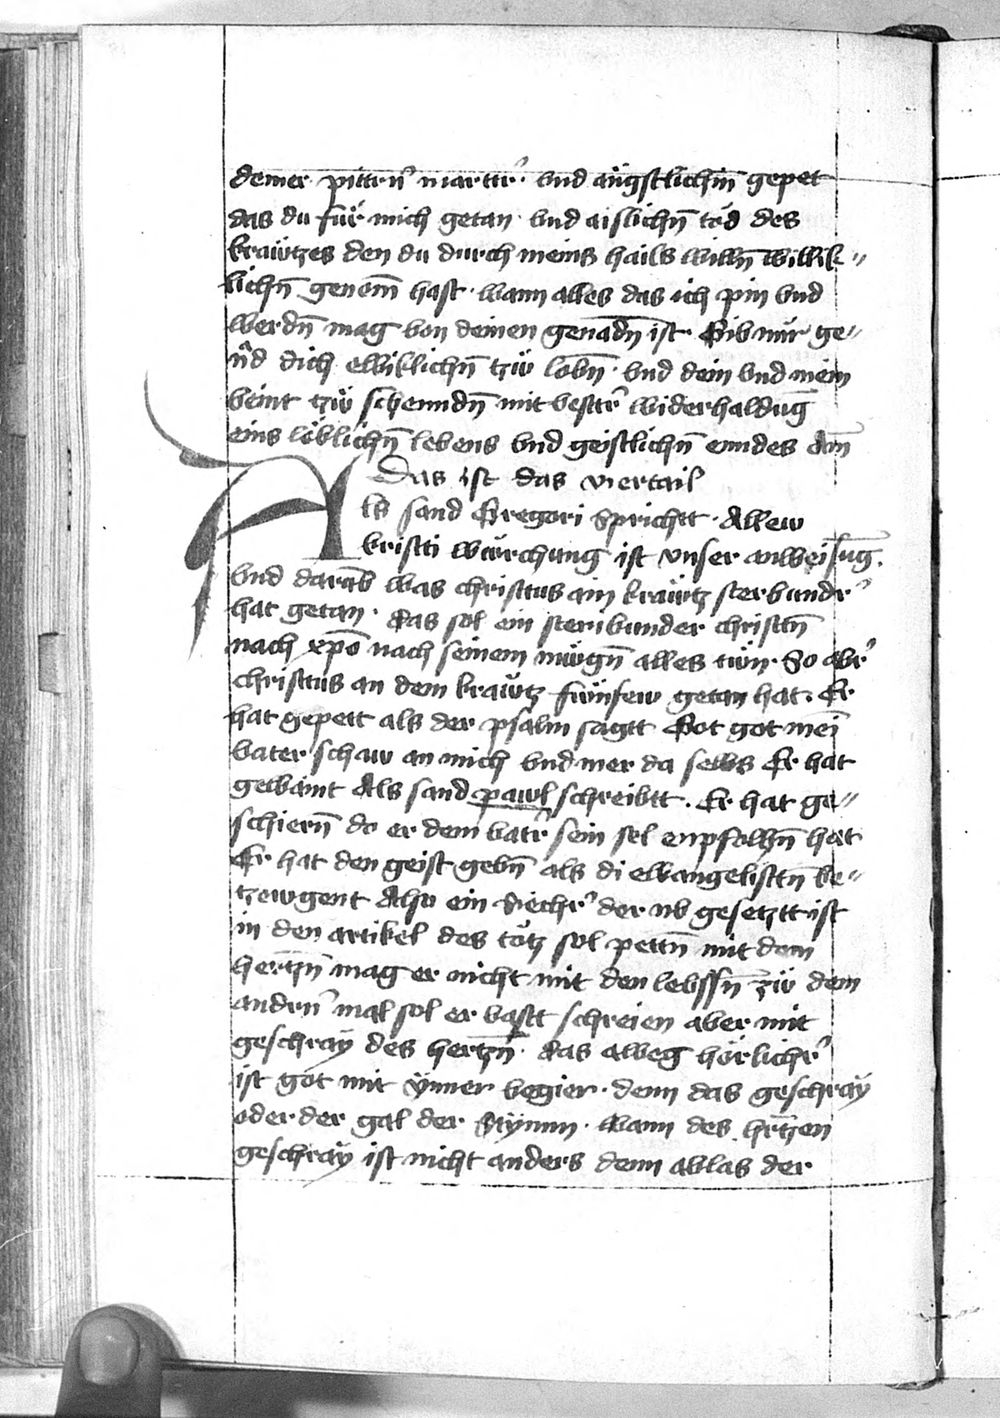 deiner pittrn̄ martr̄ · vnd ängstlichm̄ gepet
das du für mich getan · vnd aislichn̄ tod des
kräwtzes den du durch meins hails willn̄ willik〃
lichn̄ genom̄ hast · wann alles das ich pin vnd
werdn̄ mag von deinen genadn̄ ist · Gib mir ge〃
nād dich ewiklichn̄ tzw̎ lobn̄ · vnd dein vnd mein
veint tzw̎ schenndn̄ mit vestr̄ widerhaldūg
eins löblichn̄ lebens vnd geistlichn̄ enndes Am̄
Das ist das viertail
Als sand Gregori sprichtt · Allew
kristi würchung ist vnser anweisūg ·
vnd darūb was christus am kräwtz sterbundr̄
hat getan · das sol ein sterbunder christn̄
nach xp̄o nach seinem mügn̄ alles tün · So abr̄
christus an dem kräwtz fünfew getan hat · Er
hat gepett als der psalm sagtt Got got mei̅
vater schaw an mich vnd mer da selbs Er hat
gewaint Als sand pawl schreibtt · Er hat ge〃
schiern̄ do er dem vatr̄ sein sel enpfolhn̄ hat
Er hat den geist gebn̄ als di ewangelistn̄ be〃
tzewgent Also ein siechr̄ der ob gesetztt ist
in den artikel des totz sol pettn̄ mit dem
hertzn̄ mag er nicht mit den lebssn̄ zw̎ dem
andrn̄ mal sol er vastt schreien aber mit
geschray des hertzn̄ · das alweg hörlichr̄
ist got mit ynner begier · denn das geschray
oder der gal der stymm · wann des hr̄tzen
geschray ist nicht anders denn ablas der